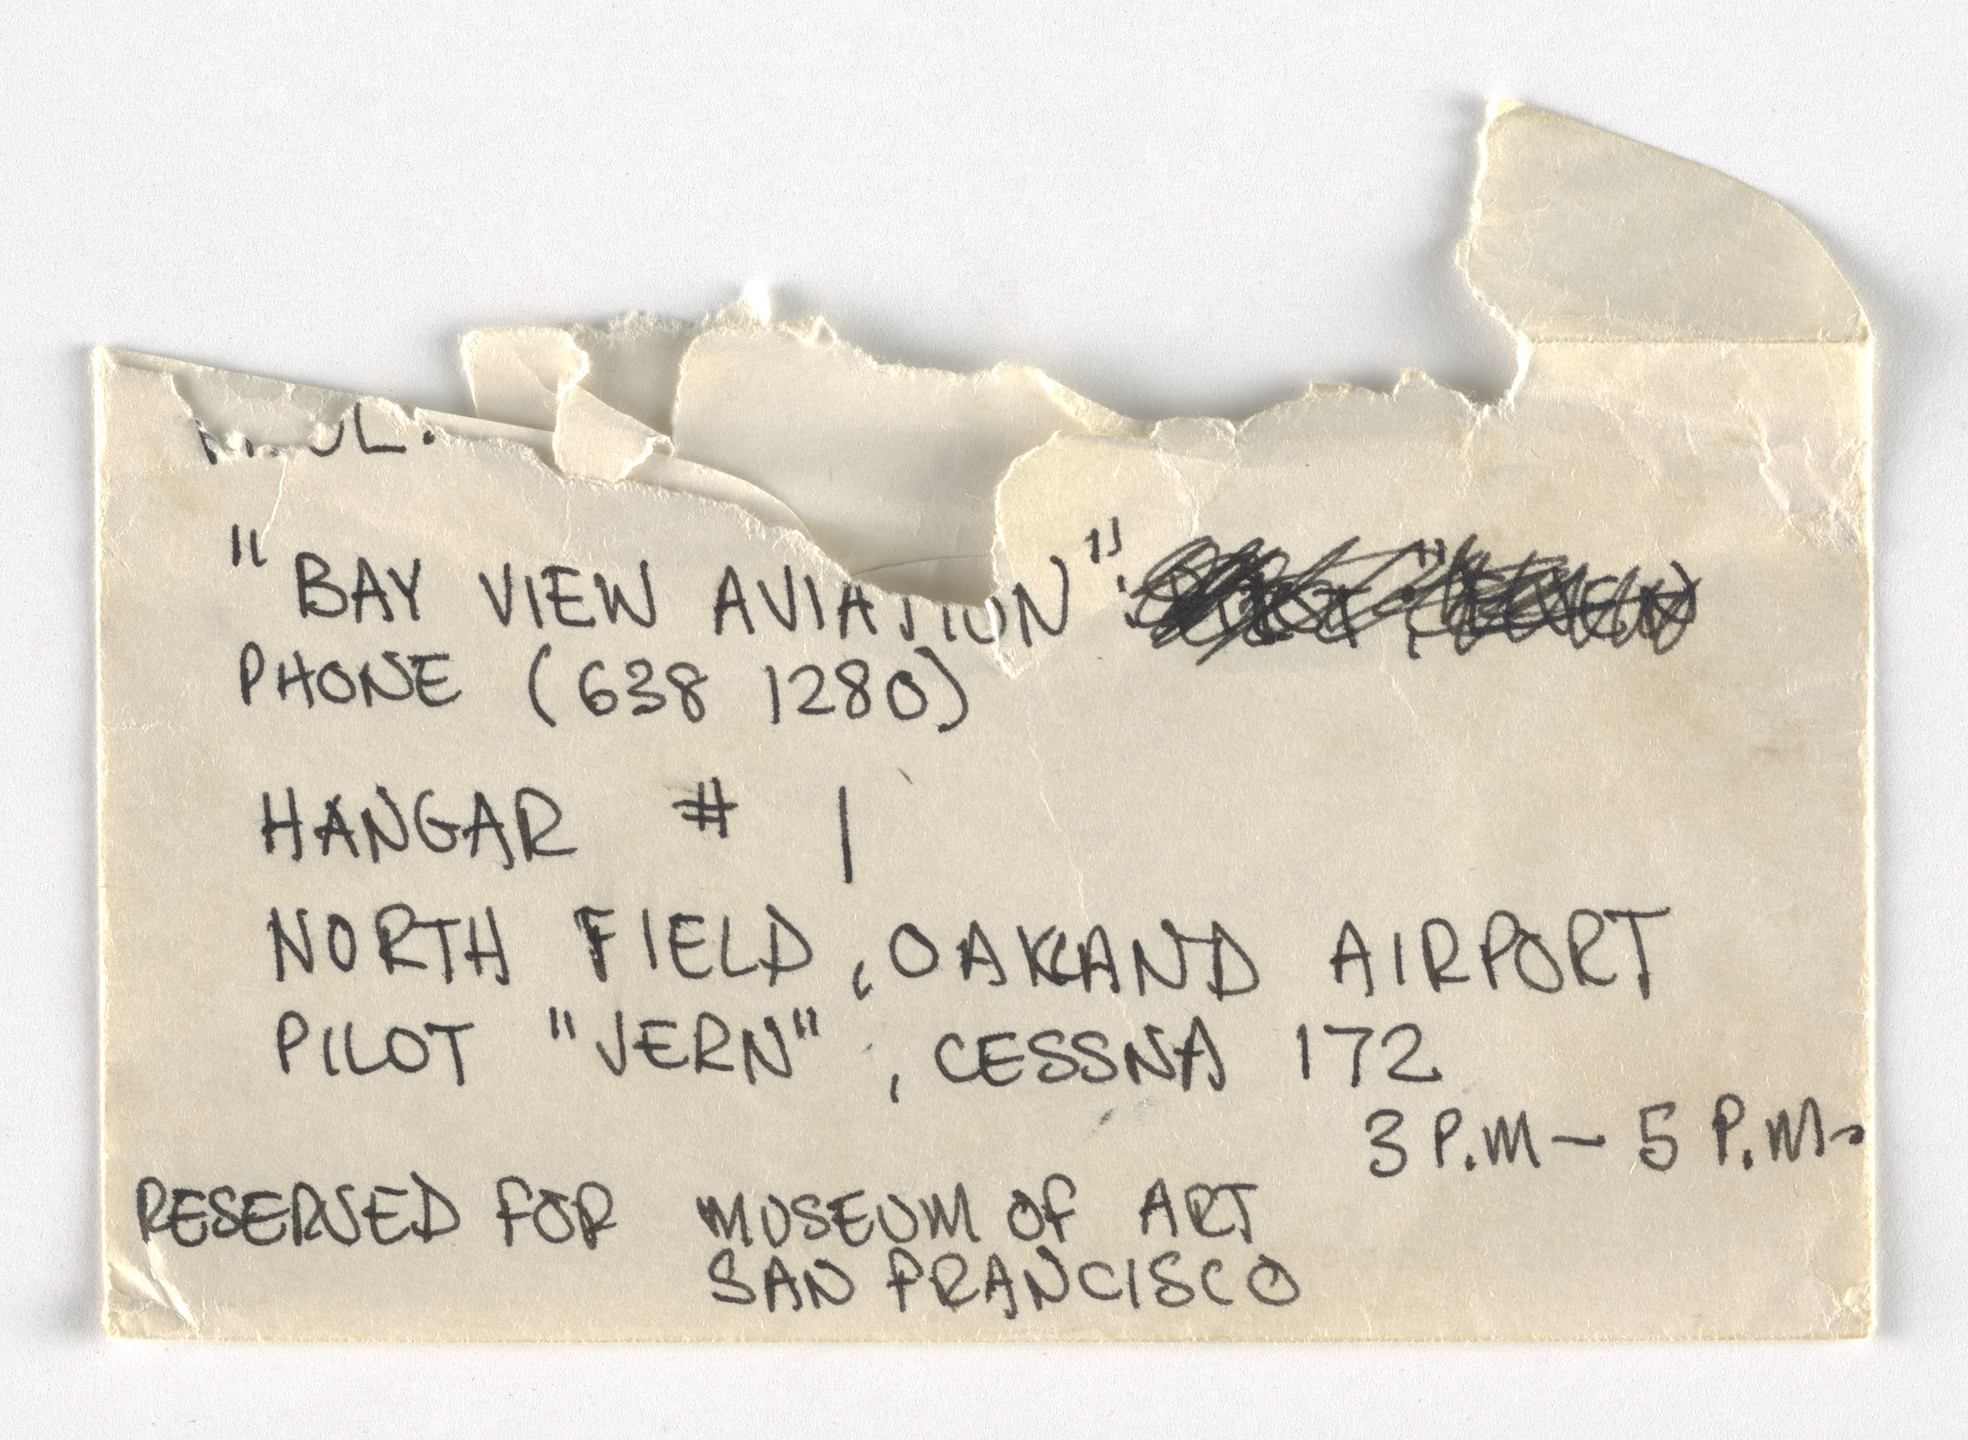 "BAY VIEW AVIATION"
PHONE (638 1280)
HANGAR # 1
NORTH FIELD, OAKLAND AIRPORT
PILOT "VERN", CESSNA 172
3 P.M – 5 P.M.
RESERVED FOR MUSEUM OF ART
SAN FRANCISCO